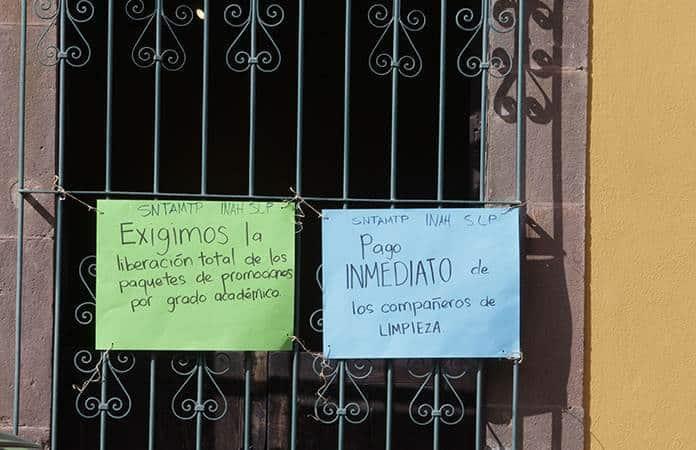 SNTAMTP INAH SLP
Exigimos la
liberación total de los
paquetes de promociones
por grado académico.
SNTAMTP INAH S.L.P
Pago
INMEDIATO de
los compañeros de
LIMPIEZA.